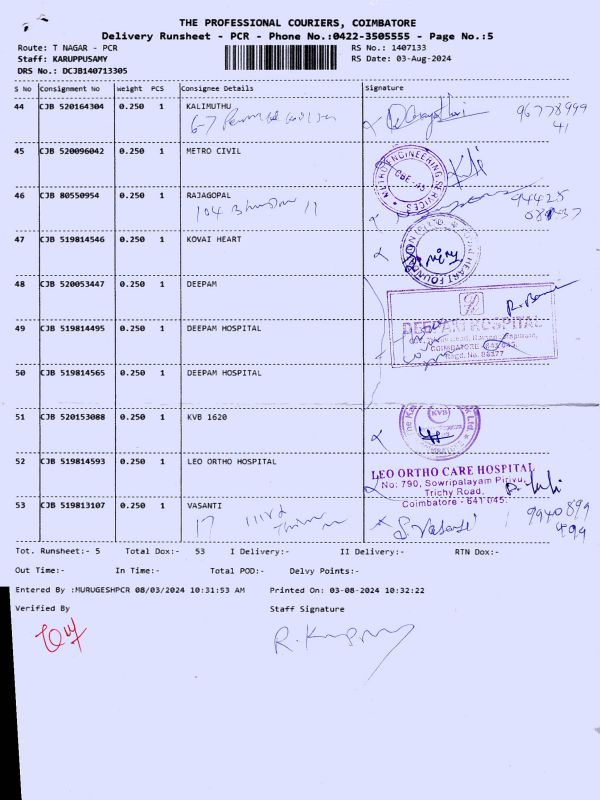 THE PROFESSIONAL COURIERS, COIMBATORE
Delivery Runsheet - PCR - Phone No.:0422-3505555 - Page No.:5
Route: T NAGAR - PCR
RS No.: 1407133
Staff: KARUPPUSAMY
RS Date: 03-Aug-2024
DRS No.: DCJB140713305
S No Consignment No Weight PCS Consignee Details Signature
44 CJB 520164304 0.250 1 KALIMUTHU
6-7
96778999
41
45 CJB 520096042 0.250 1 METRO CIVIL
METRO ENGINEERING SERVICES
CBE-45
46 CJB 80550954 0.250 1 RAJAGOPAL
104
94425
08437
47 CJB 519814546 0.250 1 KOVAI HEART
HEART FOUN
48 CJB 520053447 0.250 1 DEEPAM
DEEPAM HOSPITAL
COIMBATORE - 641 045
Regd. No. 86377
49 CJB 519814495 0.250 1 DEEPAM HOSPITAL
50 CJB 519814565 0.250 1 DEEPAM HOSPITAL
51 CJB 520153088 0.250 1 KVB 1620
KVB
52 CJB 519814593 0.250 1 LEO ORTHO HOSPITAL
LEO ORTHO CARE HOSPITAL
No: 790, Sowripalayam Pirivu,
Trichy Road,
Coimbatore - 641 045.
53 CJB 519813107 0.250 1 VASANTI
17 IIIrd
S. Vasanti
9940899
499
Tot. Runsheet:- 5 Total Dox:- 53 I Delivery:- II Delivery:- RTN Dox:-
Out Time:- In Time:- Total POD:- Delvy Points:-
Entered By :MURUGESHPCR 08/03/2024 10:31:53 AM Printed On: 03-08-2024 10:32:22
Verified By Staff Signature